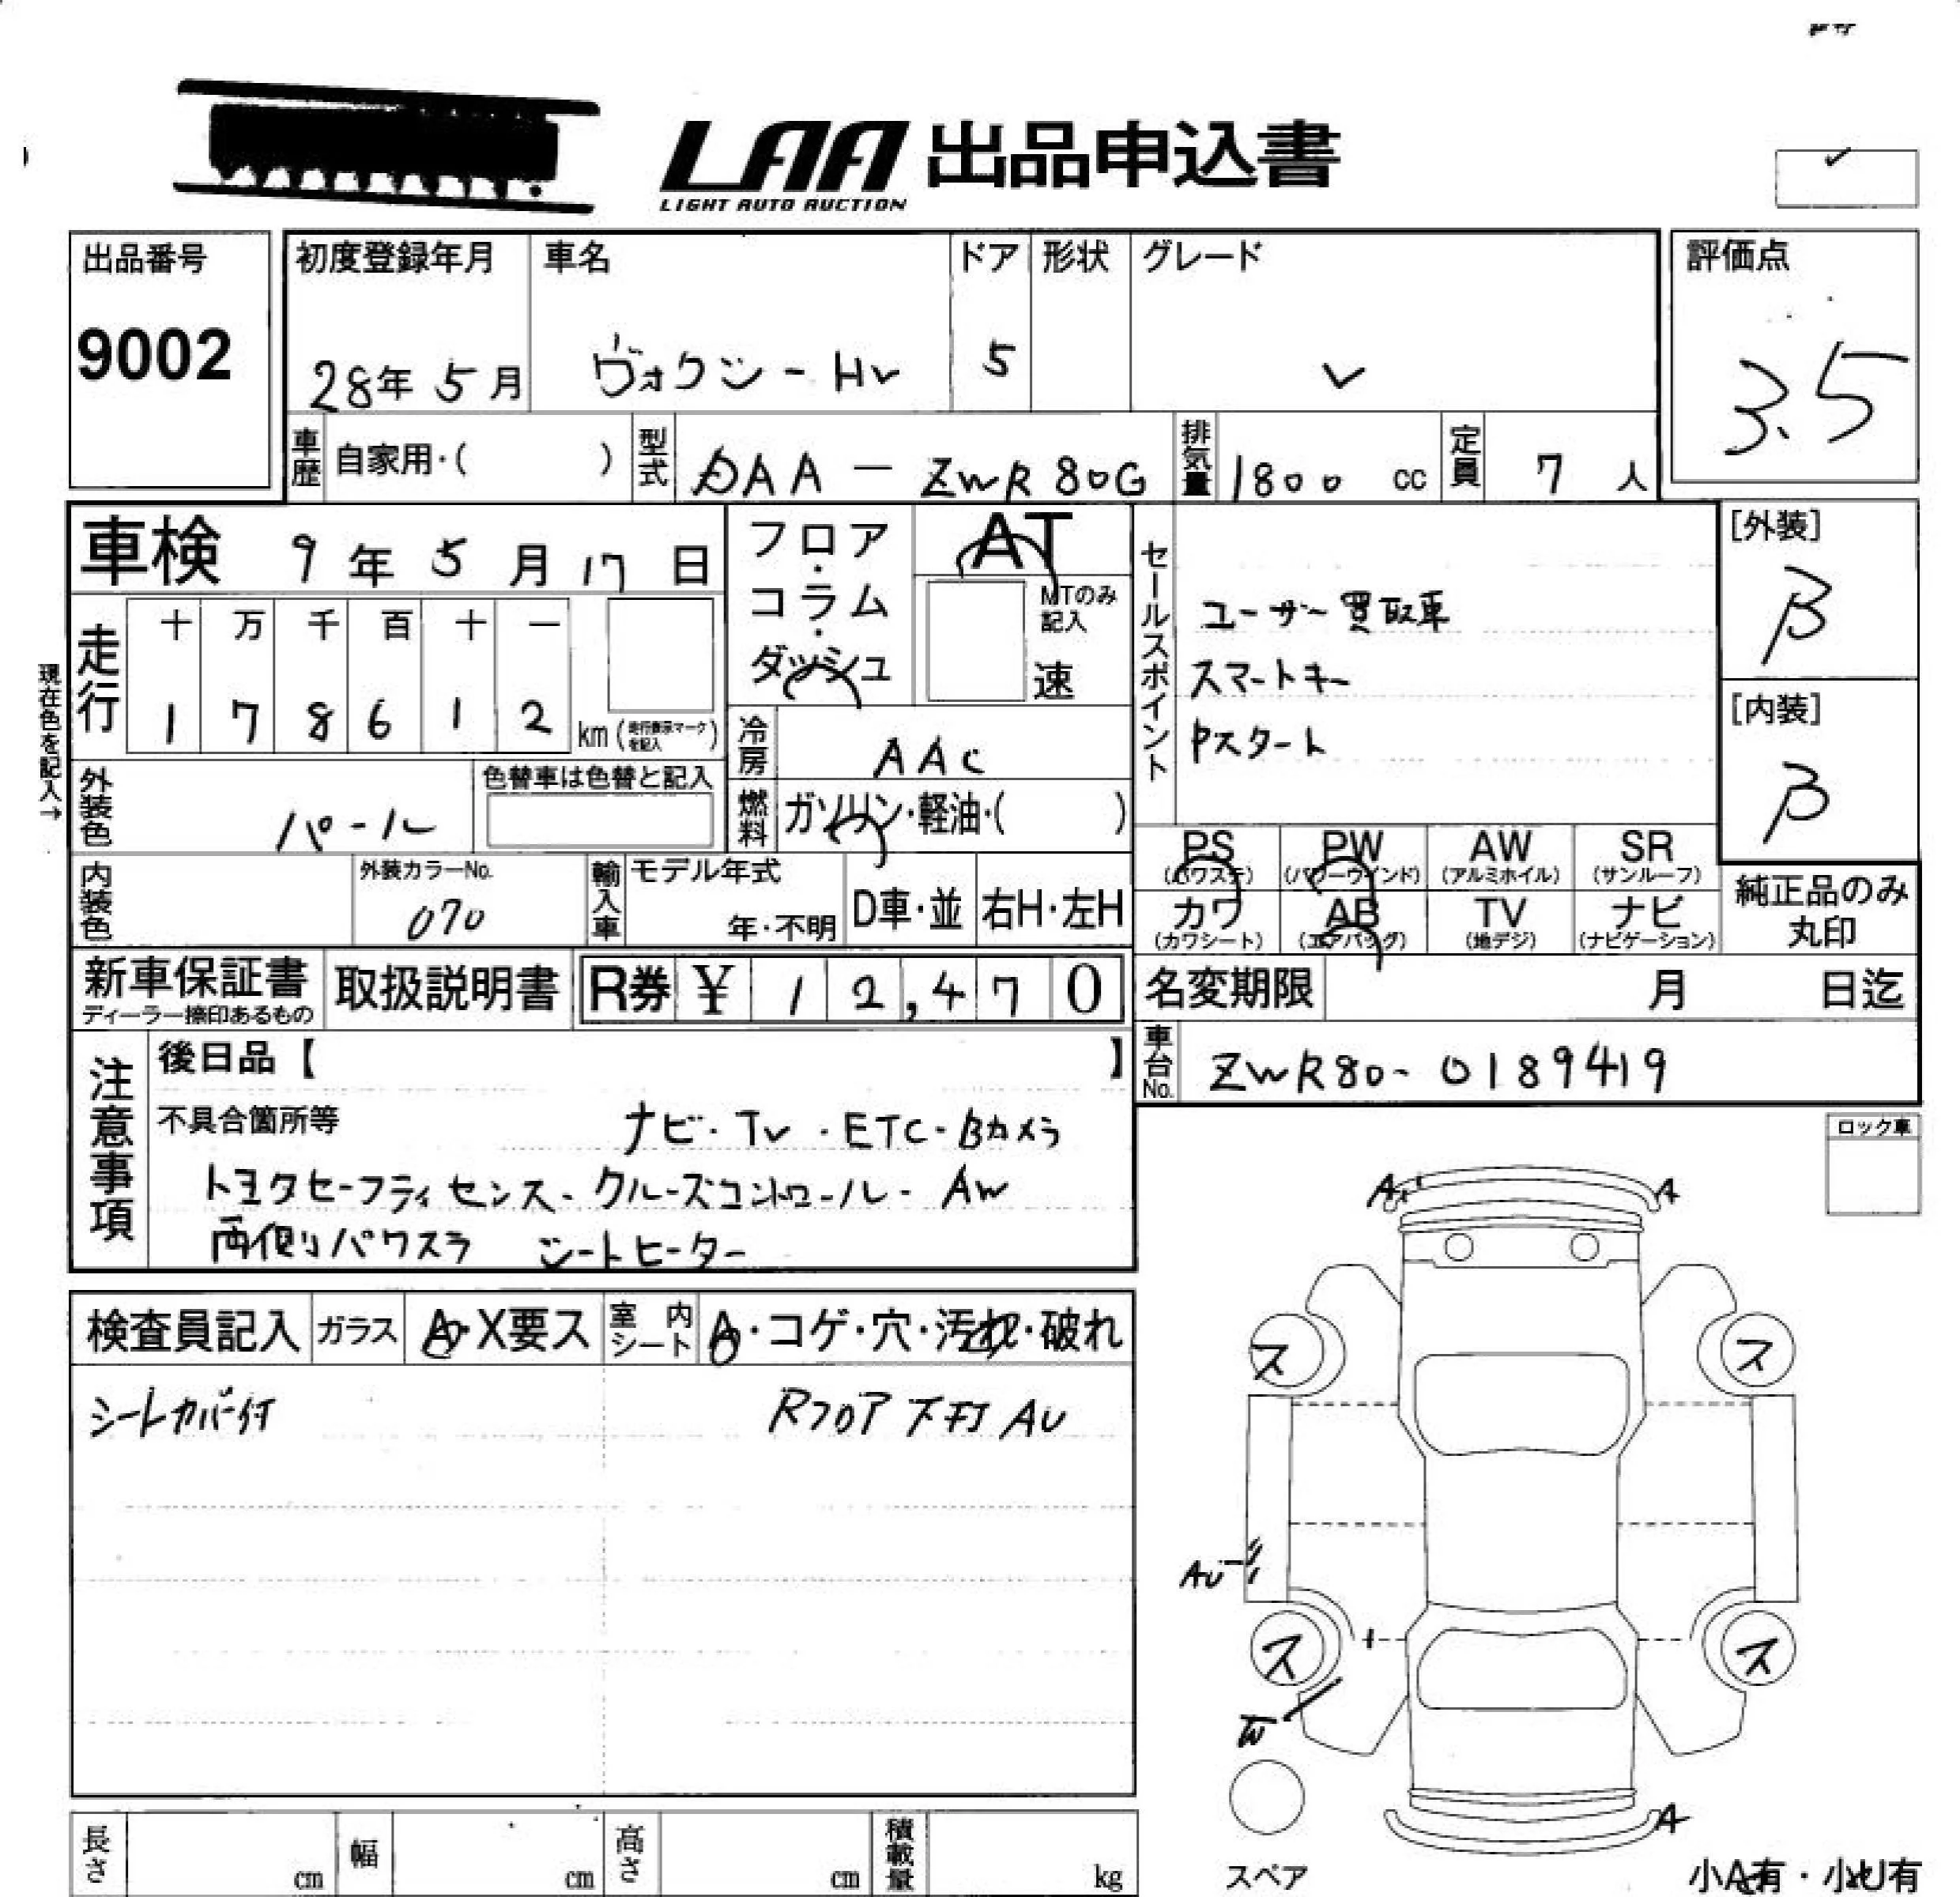 LAA 出品申込書
LIGHT AUTO AUCTION
出品番号
9002
初度登録年月
28年 5月
車名
ヴォクシー Hv
ドア
5
形状
グレード
V
評価点
3.5
車歴 自家用・( )
型式 DAA - ZWR80G
排気量 1800 cc
定員 7 人
車検 9年 5月 17日
フロア・コラム・ダッシュ
AT
MTのみ記入
速
セールスポイント
ユーザー買取車
スマートキー
Pスタート
[外装]
B
[内装]
B
現在色を記入→
走行
十 万 千 百 十 一
1 7 8 6 1 2 km (走行表示マークを記入)
冷房 AAC
外装色 パール
色替車は色替と記入
燃料 ガソリン・軽油・( )
PS (パワステ)
PW (パワーウインド)
AW (アルミホイル)
SR (サンルーフ)
カワ (カワシート)
AB (エアバッグ)
TV (地デジ)
ナビ (ナビゲーション)
純正品のみ丸印
内装色
外装カラーNo.
070
輸入車
モデル年式
年・不明
D車・並
右H・左H
新車保証書
ディーラー捺印あるもの
取扱説明書
R券 ¥ 12,470
名変期限 月 日迄
車台No. ZWR80-0189419
注意事項
後日品【 】
不具合箇所等
ナビ・TV・ETC・Bカメラ
トヨタセーフティセンス・クルーズコントロール・AW
両側パワスラ シートヒーター
ロック車
検査員記入
ガラス A・X要ス
室内シート A・コゲ・穴・汚れ・破れ
シートカバー付
Rフロア 下打 AU
A A
ス ス
AU
ス ス
A
スペア
小A有・小U有
長さ cm
幅 cm
高さ cm
積載量 kg